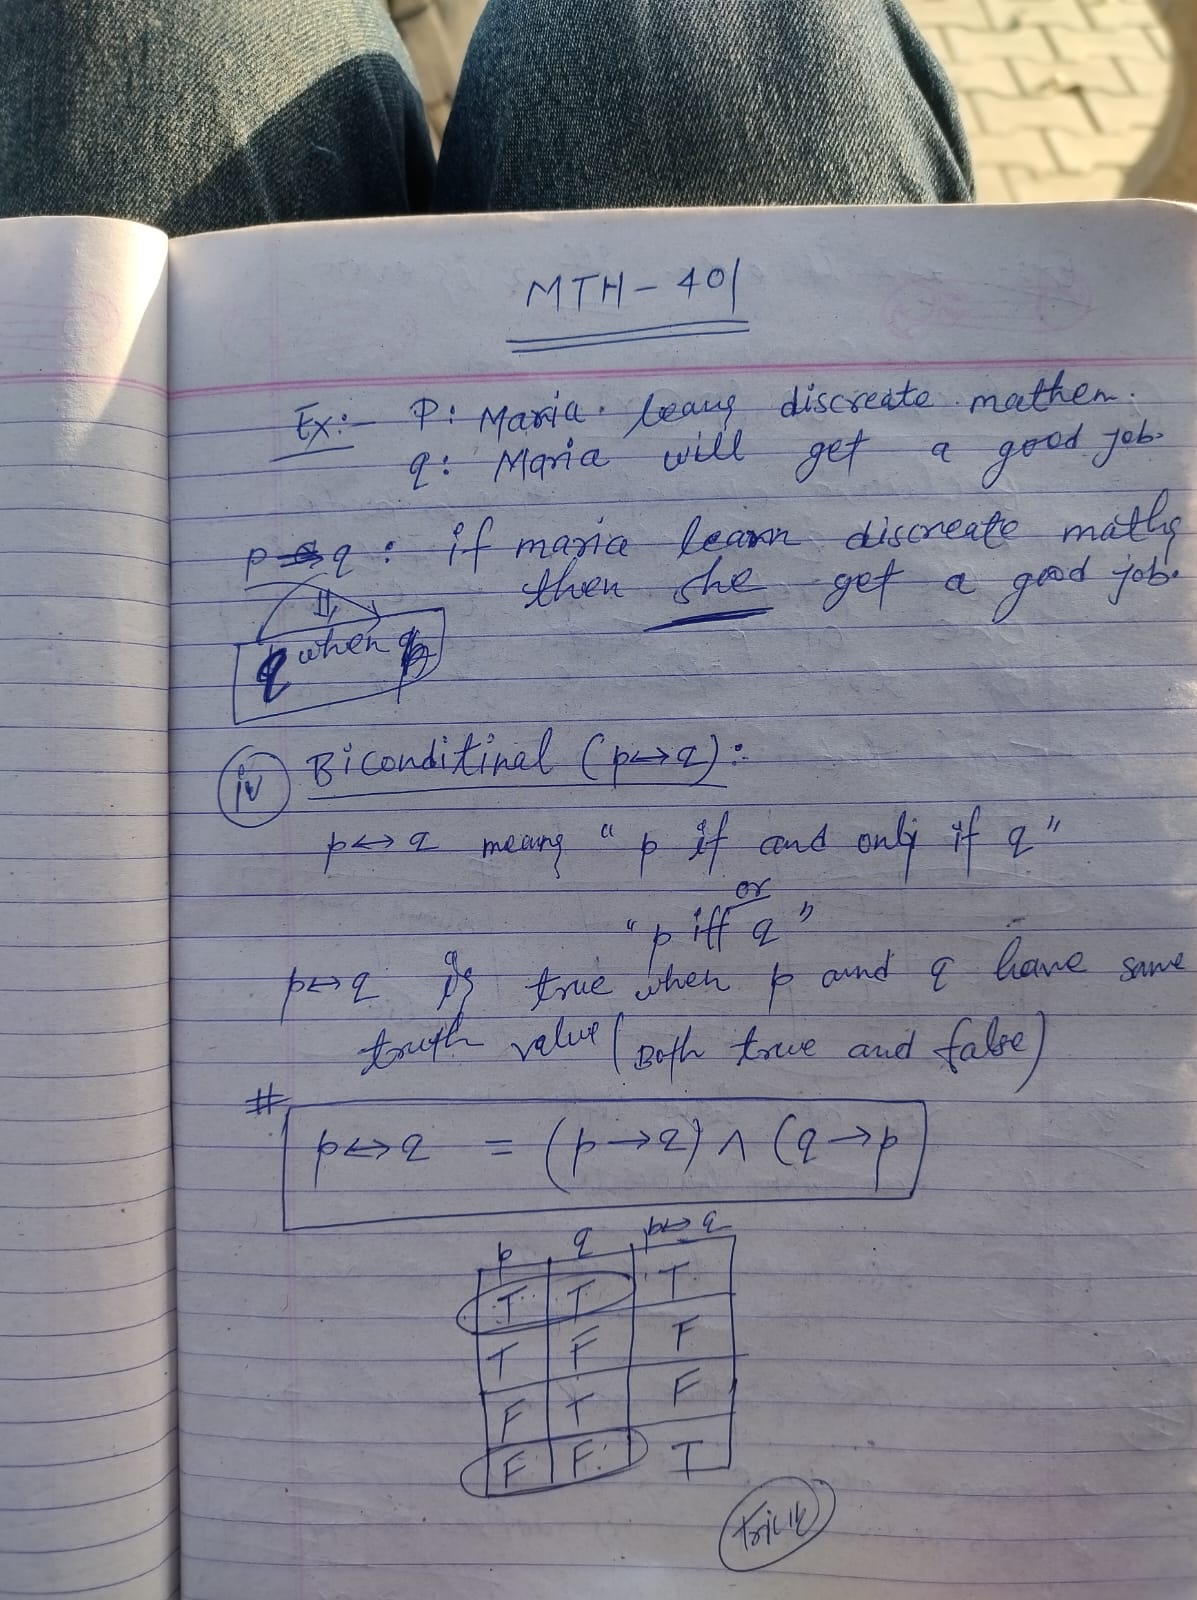 MTH - 401
Ex:- P: Maria learns discreate mathem.
q: Maria will get a good job.
p → q : if maria learn discreate maths
then she get a good job.
q when p
iv Biconditinal (p↔q):
p↔q means "p if and only if q"
or
"p iff q"
p↔q is true when p and q have same
truth value (Both true and false)
# p↔q = (p→q) ∧ (q→p
p q p↔q
T T T
T F F
F T F
F F T
trick